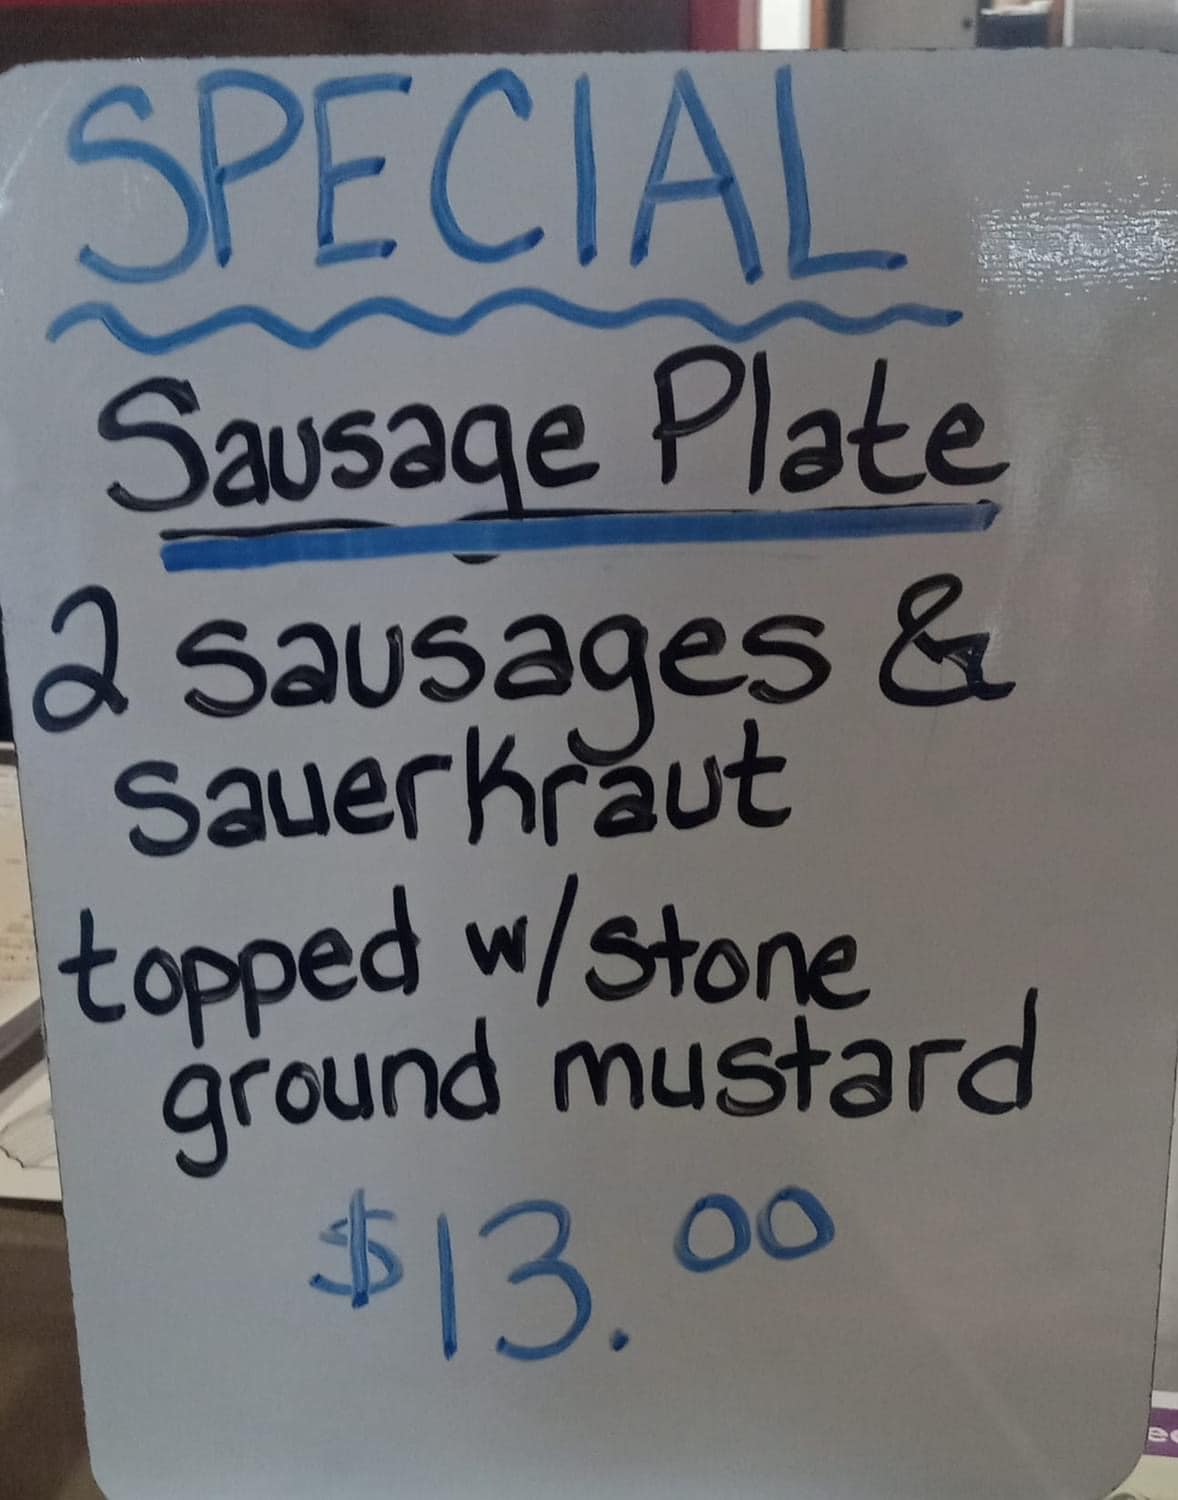 SPECIAL
Sausage Plate
2 sausages &
sauerkraut
topped w/stone
ground mustard
$13.00